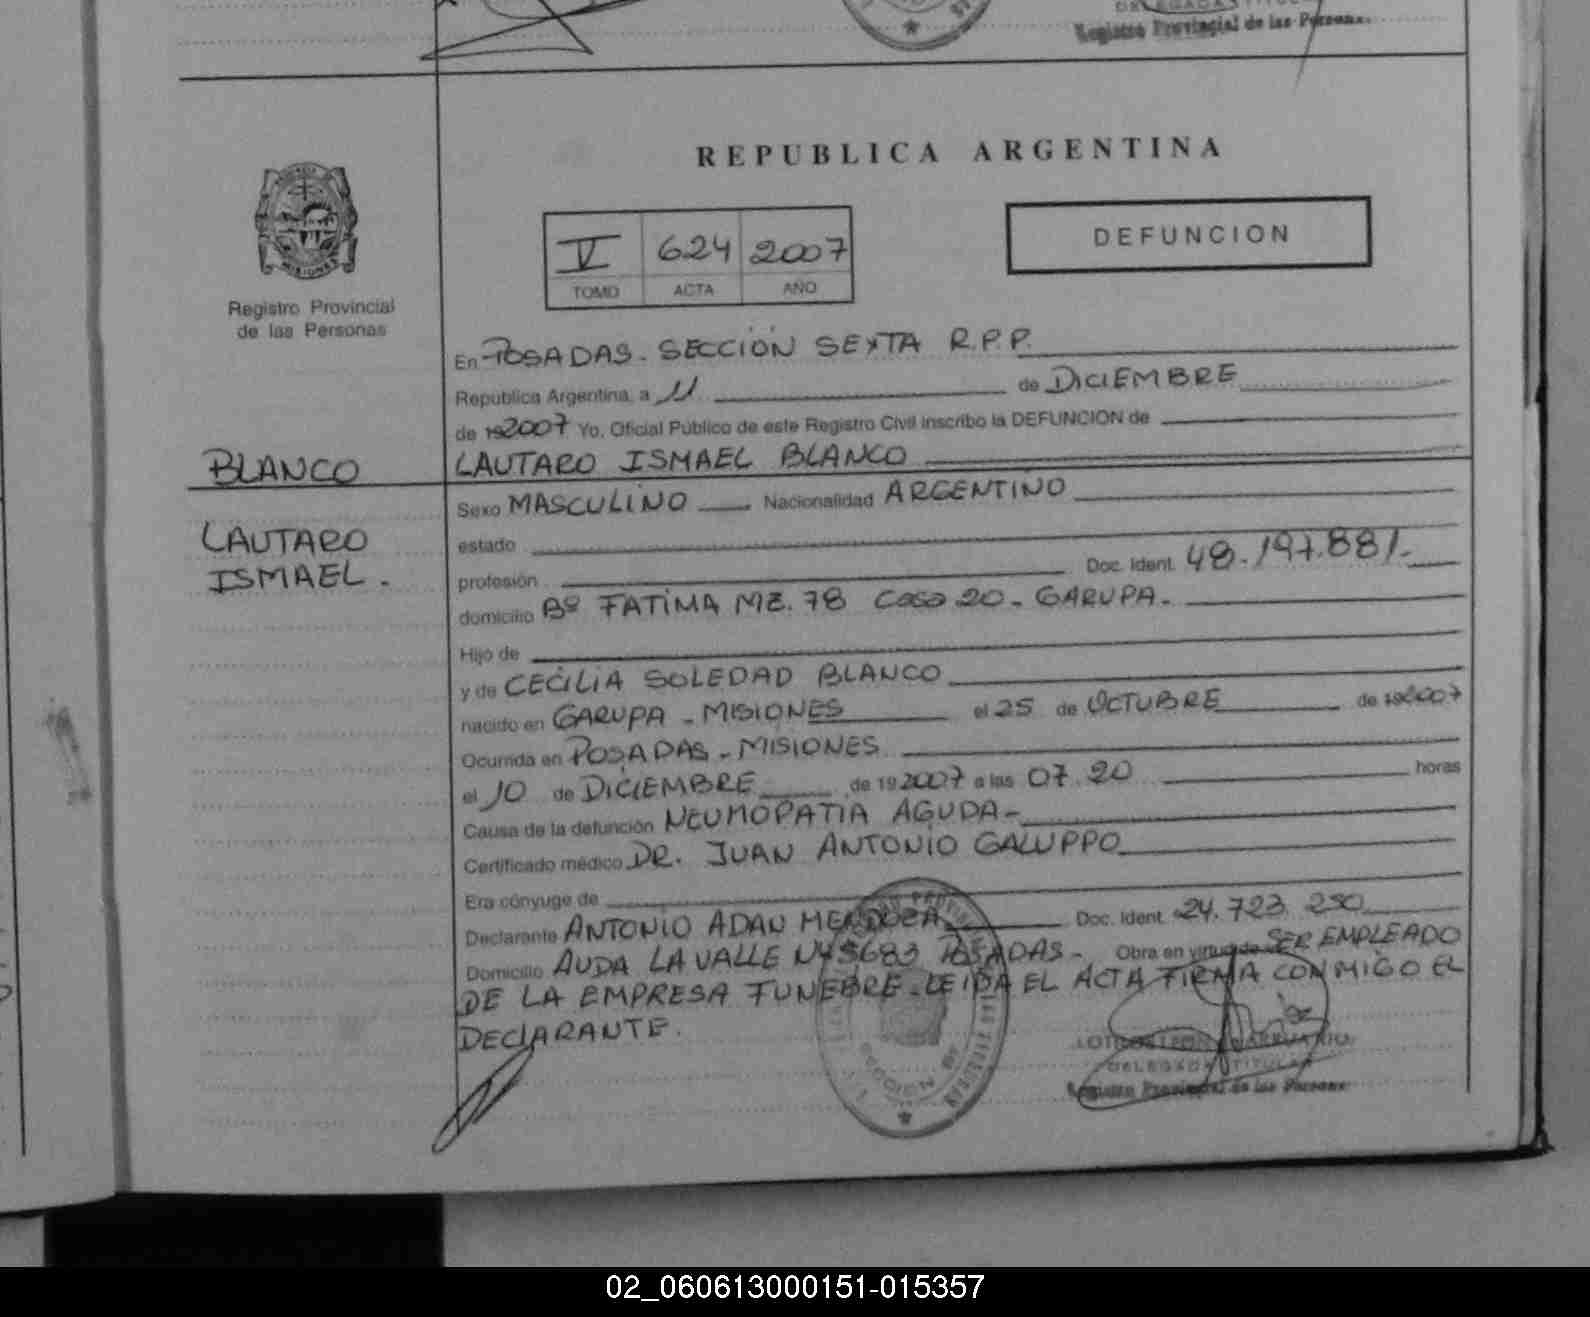 Registro Provincial de las Persona
REPUBLICA ARGENTINA
MISIONES
Registro Provincial
de las Personas
V 624 2007
TOMO ACTA AÑO
DEFUNCION
En POSADAS. SECCIÓN SEXTA R.P.P.
República Argentina, a 11 de DICIEMBRE
de 192007 Yo, Oficial Público de este Registro Civil inscribo la DEFUNCION de
BLANCO LAUTARO ISMAEL BLANCO
Sexo MASCULINO Nacionalidad ARGENTINO
LAUTARO
ISMAEL.
estado
profesión Doc. Ident. 48.197.881.
domicilio Bº FATIMA MZ. 78 Casa 20. GARUPA.
Hijo de
y de CECILIA SOLEDAD BLANCO
nacido en GARUPA - MISIONES el 25 de OCTUBRE de 192007
Ocurrida en POSADAS - MISIONES
el 10 de DICIEMBRE de 192007 a las 07.20 horas
Causa de la defunción NEUMOPATIA AGUDA-
Certificado médico DR. JUAN ANTONIO GALUPPO
Era cónyuge de
Declarante ANTONIO ADAN MENDOZA Doc. Ident. 24.723.250
Domicilio AVDA LAVALLE Nº 5683 POSADAS- Obra en virtud de SER EMPLEADO
DE LA EMPRESA FUNEBRE. LEIDA EL ACTA FIRMA CON MIGO EL
DECLARANTE.
DELEGADA TITULAR
Registro Provincial de las Persona
02_060613000151-015357